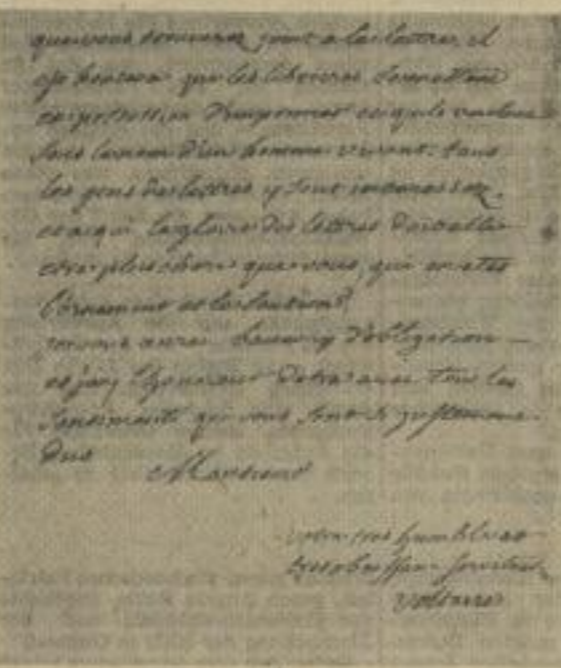 que vous donnerez joint a la lettre, il
que les libraires
d'imprimer ce qu'ils veulent
sous le nom d'un homme vivant. tous
les gens de lettres y sont interessez,
et a qui la gloire des lettres doit elle
etre plus chere que vous, qui en etes
l'ornement et le soutien?
je vous aurai beaucoup d'obligation
et j'ay l'honneur d'etre avec tous les
sentiments qui vous sont si justement
dus
Monsieur
votre tres humble et
tres obeissant serviteur
Voltaire